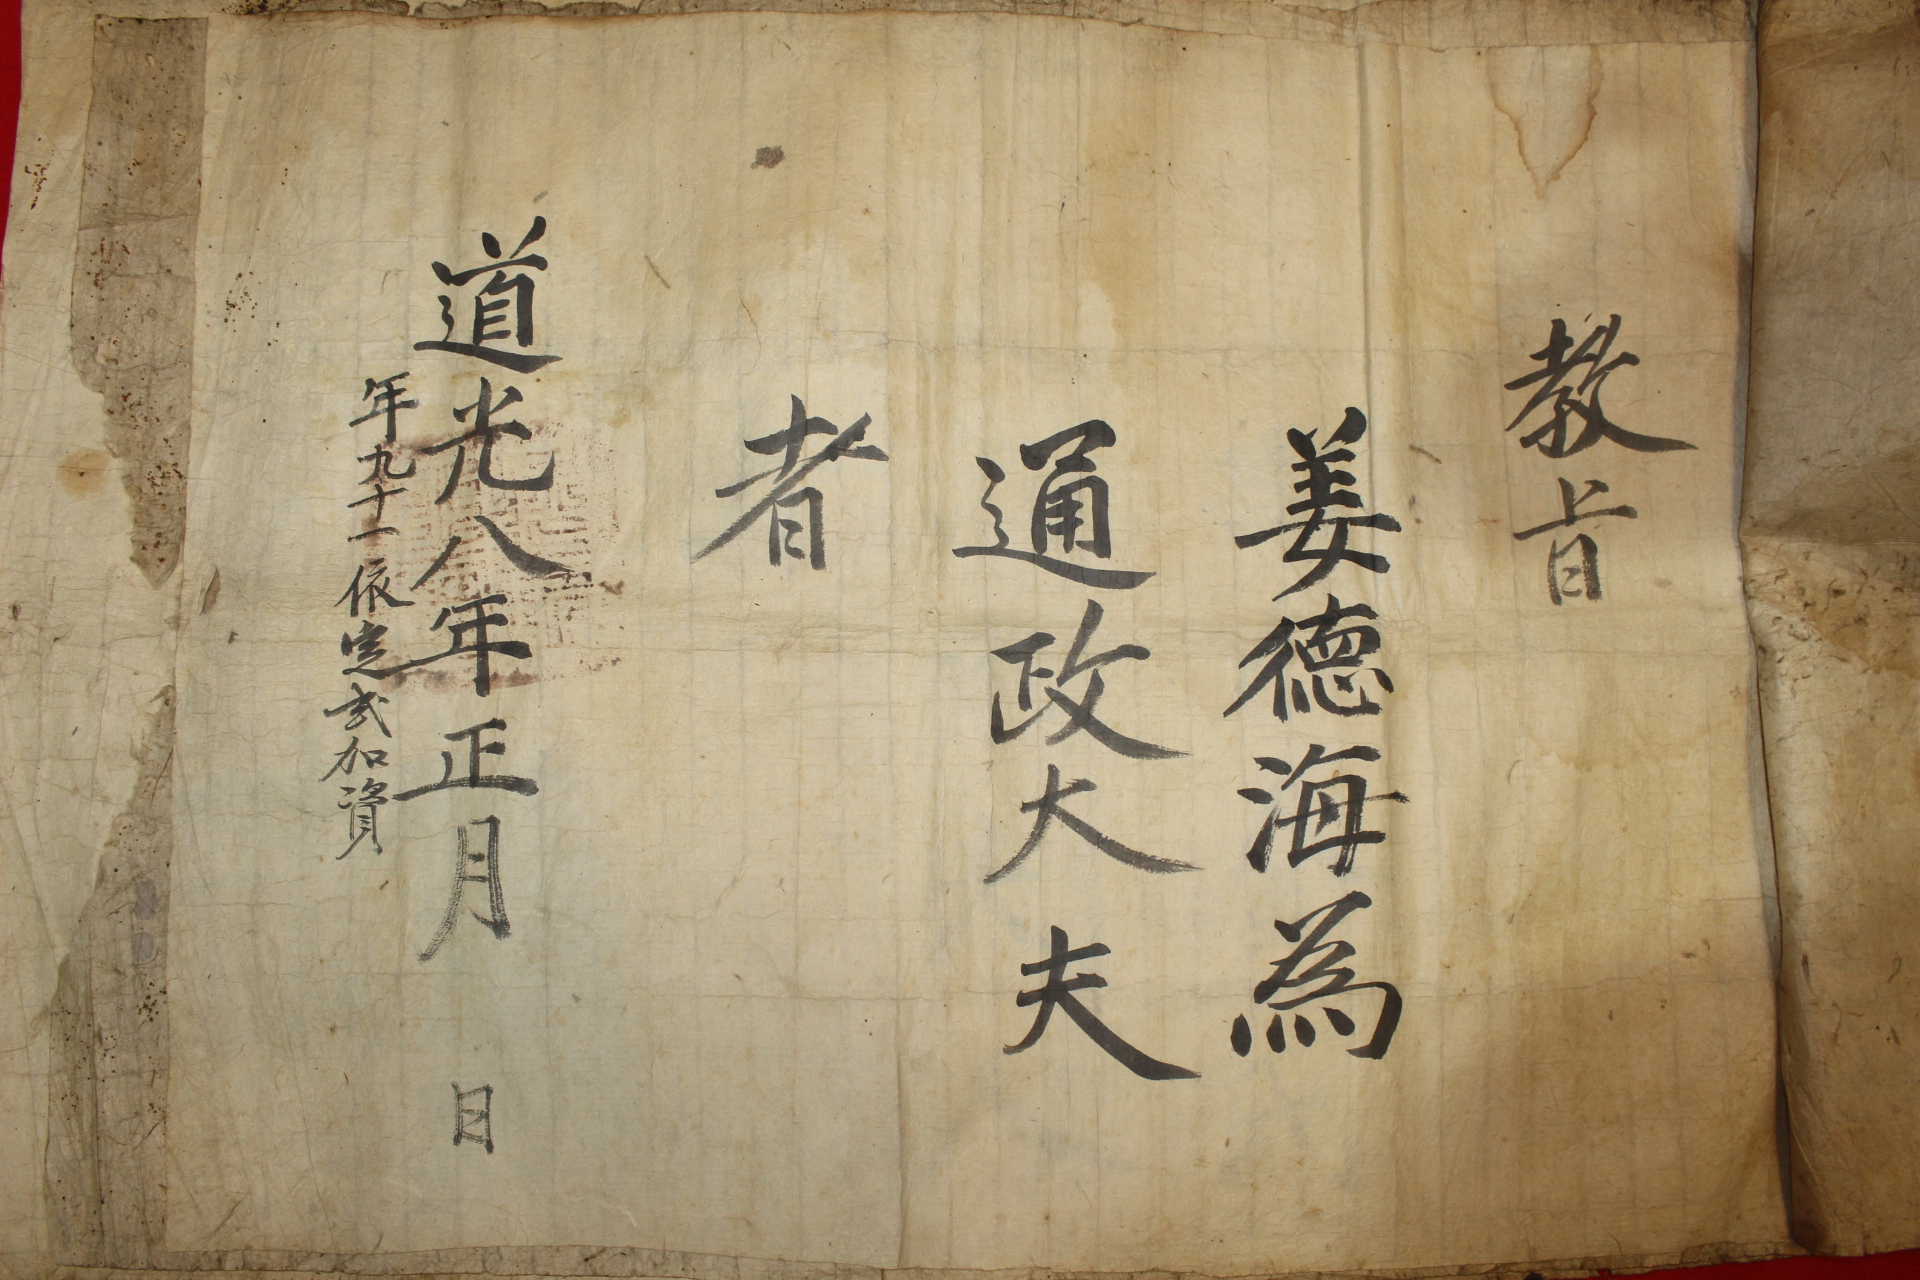 敎旨
姜德海爲
通政大夫
者
道光八年正月 日
年九十一依定式加資